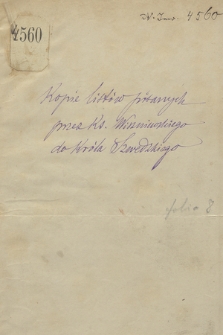 4560
N. Inw. 4560
Kopie listów pisanych
przez Ks. Wiszniewskiego
do Króla Szwedzkiego
folio